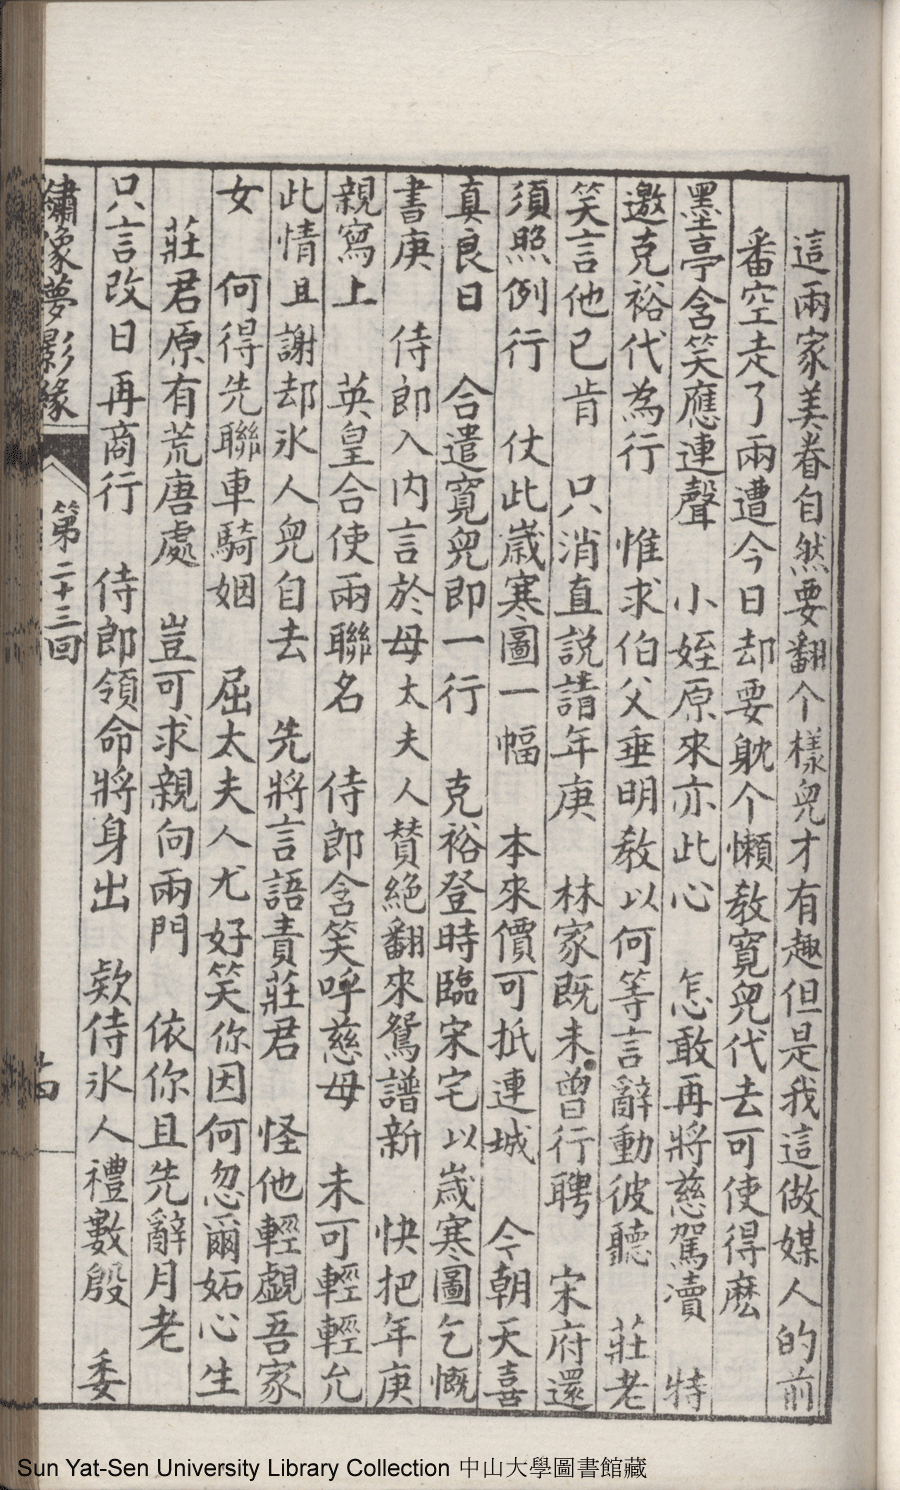 這兩家美眷自然要翻个樣兒才有趣但是我這做媒人的前
番空走了兩遭今日却要躭个懶教寬兒代去可使得麽
墨亭含笑應連聲　小姪原來亦此心　怎敢再將慈駕瀆　特
邀克裕代為行　惟求伯父垂明教以何等言辭動彼聽　莊老
笑言他已肯　只消直説請年庚　林家既未曾行聘　宋府還
須照例行　仗此歲寒圖一幅　本來價可抵連城　今朝天喜
真良日　合遣寬兒即一行　克裕登時臨宋宅以歲寒圖乞慨
書庚　侍郎入内言於母太夫人贊絶翻來鴛譜新　快把年庚
親寫上　英皇合使兩聯名　侍郎含笑呼慈母　未可輕輕允
此情且謝却氷人兒自去　先將言語責莊君　怪他輕覷吾家
女　何得先聯車騎姻　屈太夫人尤好笑你因何忽爾妬心生
莊君原有荒唐處　豈可求親向兩門　依你且先辭月老
只言改日再商行　侍郎領命將身出　欵侍氷人禮數殷　委
繡像夢影緣
第二十三回
Sun Yat-Sen University Library Collection 中山大學圖書館藏